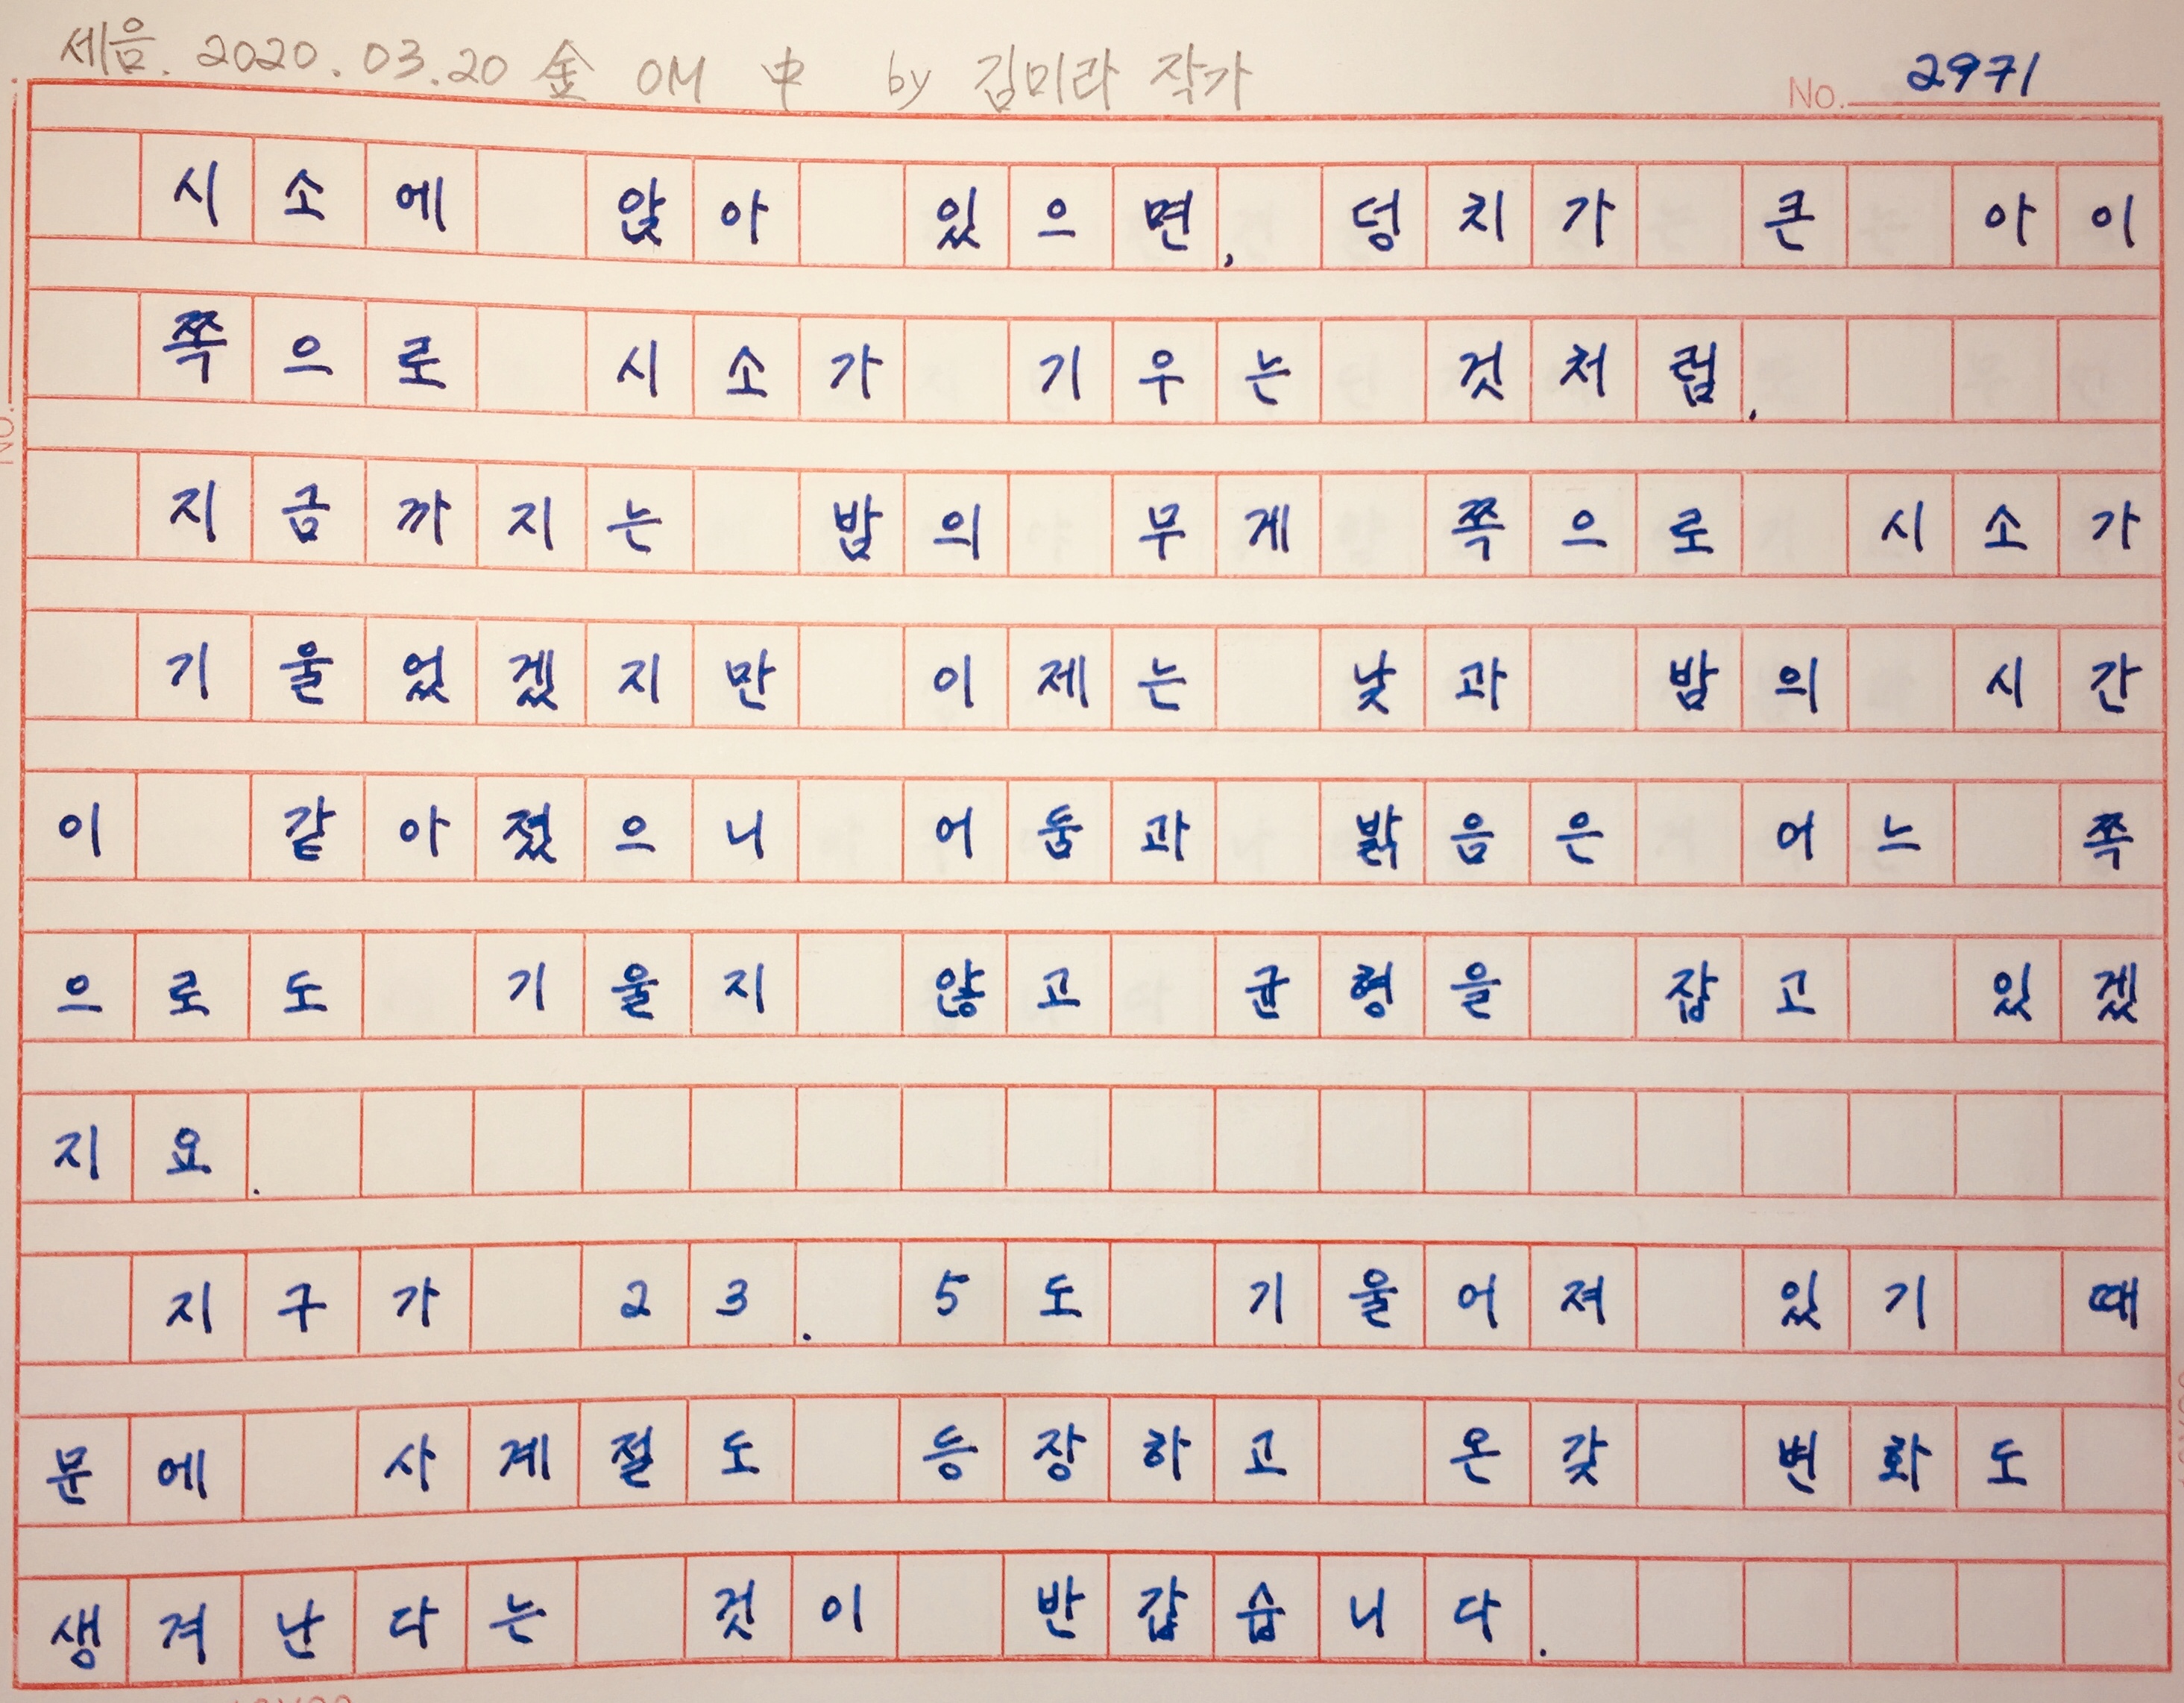 세음. 2020.03.20 金 OM 中 by 김미라 작가
No. 2971
시소에 앉아 있으면, 덩치가 큰 아이
쪽으로 시소가 기우는 것처럼.
지금까지는 밤의 무게 쪽으로 시소가
기울었겠지만 이제는 낮과 밤의 시간
이 같아졌으니 어둠과 밝음은 어느 쪽
으로도 기울지 않고 균형을 잡고 있겠
지요.
지구가 23.5도 기울어져 있기 때
문에 사계절도 등장하고 온갖 변화도
생겨난다는 것이 반갑습니다.
NO.